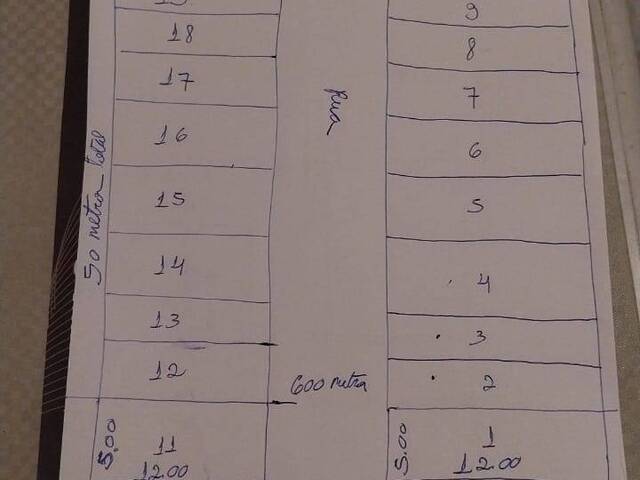 18
17
16
15
14
13
12
11
12.00
5.00
50 metra total
Rua
600 metra
9
8
7
6
5
4
3
2
1
12.00
5.00